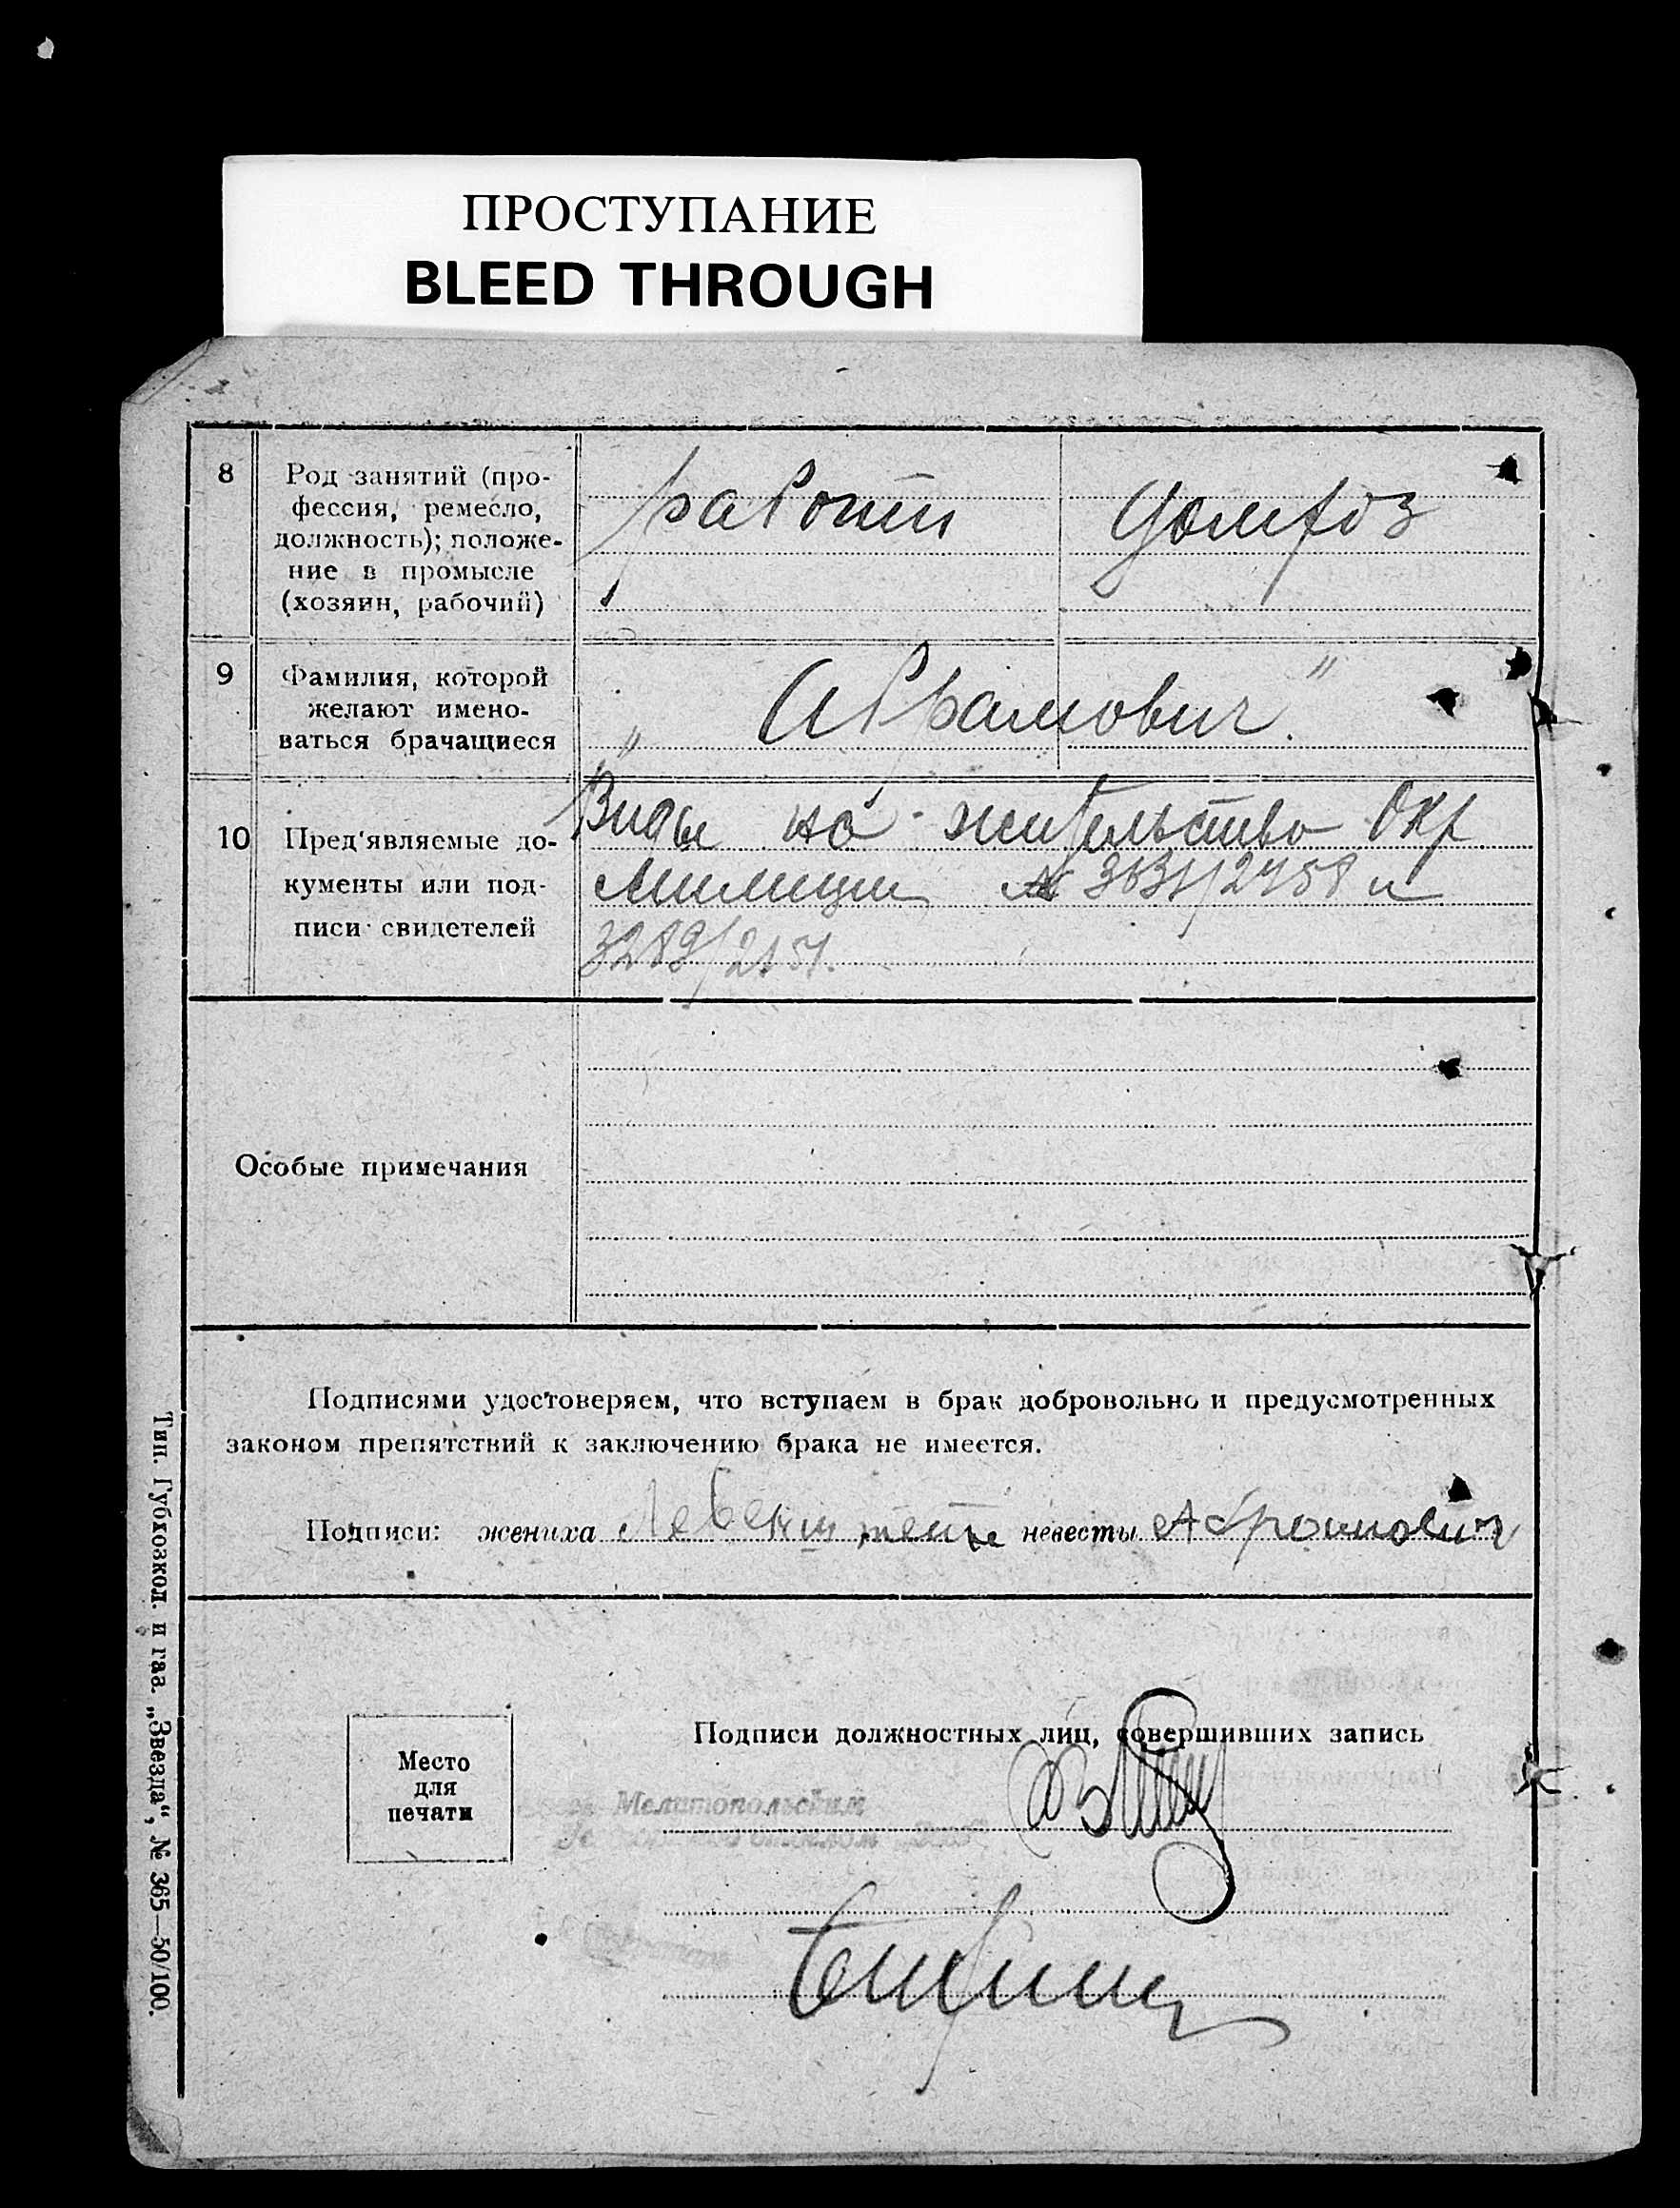 ПРОСТУПАНИЕ
BLEED THROUGH
8
Род занятий (про-
фессия, ремесло,
должность); положе-
ние в промысле
(хозяин, рабочий)
работн
домхоз
9
Фамилия, которой
желают имено-
ваться брачащиеся
„ Абрамович. "
10
Пред'являемые до-
кументы или под-
писи свидетелей
Виды на жительство Окр
Милиции № и
Особые примечания
Подписями удостоверяем, что вступаем в брак добровольно и предусмотренных
законом препятствий к заключению брака не имеется.
Подписи: жениха невесты Абрамович
Место
для
печати
Подписи должностных лиц, совершивших запись
Мелитопольским
Тип. Губкозкол. и газ. „Звезда“, № 365—50/100.